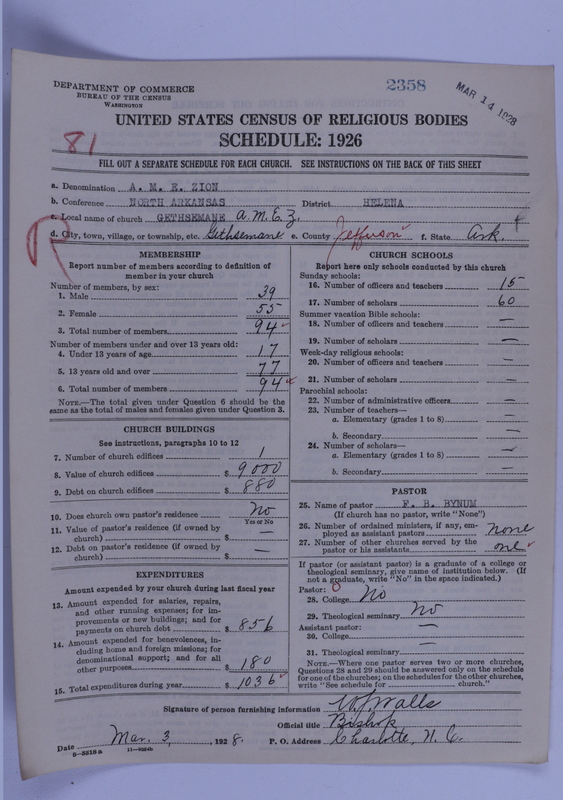 DEPARTMENT OF COMMERCE
BUREAU OF THE CENSUS
WASHINGTON
2358
MAR 14 1928
UNITED STATES CENSUS OF RELIGIOUS BODIES
81
SCHEDULE: 1926
FILL OUT A SEPARATE SCHEDULE FOR EACH CHURCH. SEE INSTRUCTIONS ON THE BACK OF THIS SHEET
a. Denomination A. M. E. ZION
b. Conference NORTH ARKANSAS District HELENA
c. Local name of church GETHSEMANE A.M.E.Z.
d. City, town, village, or township, etc. Gethsemane e. County Jefferson f. State Ark.
MEMBERSHIP
Report number of members according to definition of
member in your church
Number of members, by sex:
1. Male 39
2. Female 55
3. Total number of members 94
Number of members under and over 13 years old:
4. Under 13 years of age 17
5. 13 years old and over 77
6. Total number of members 94
NOTE.—The total given under Question 6 should be the
same as the total of males and females given under Question 3.
CHURCH BUILDINGS
See instructions, paragraphs 10 to 12
7. Number of church edifices 1
8. Value of church edifices $ 9000
9. Debt on church edifices $ 880
10. Does church own pastor's residence No
Yes or No
11. Value of pastor's residence (if owned by
church) $ —
12. Debt on pastor's residence (if owned by
church) $ —
EXPENDITURES
Amount expended by your church during last fiscal year
13. Amount expended for salaries, repairs,
and other running expenses; for im-
provements or new buildings; and for
payments on church debt $ 856
14. Amount expended for benevolences, in-
cluding home and foreign missions; for
denominational support; and for all
other purposes $ 180
15. Total expenditures during year $ 1036
CHURCH SCHOOLS
Report here only schools conducted by this church
Sunday schools:
16. Number of officers and teachers 15
17. Number of scholars 60
Summer vacation Bible schools:
18. Number of officers and teachers —
19. Number of scholars —
Week-day religious schools:
20. Number of officers and teachers —
21. Number of scholars —
Parochial schools:
22. Number of administrative officers —
23. Number of teachers—
a. Elementary (grades 1 to 8) —
b. Secondary —
24. Number of scholars—
a. Elementary (grades 1 to 8) —
b. Secondary —
PASTOR
25. Name of pastor F. B. BYNUM
(If church has no pastor, write "None")
26. Number of ordained ministers, if any, em-
ployed as assistant pastors none
27. Number of other churches served by the
pastor or his assistants one
If pastor (or assistant pastor) is a graduate of a college or
theological seminary, give name of institution below. (If
not a graduate, write "No" in the space indicated.)
Pastor:
28. College No
29. Theological seminary No
Assistant pastor: —
30. College —
31. Theological seminary —
NOTE.—Where one pastor serves two or more churches,
Questions 28 and 29 should be answered only on the schedule
for one of the churches; on the schedules for the other churches,
write "See schedule for church."
Signature of person furnishing information W J Walls
Official title Bishop
Date Mar. 3, 1928. P. O. Address Charlotte, N. C.